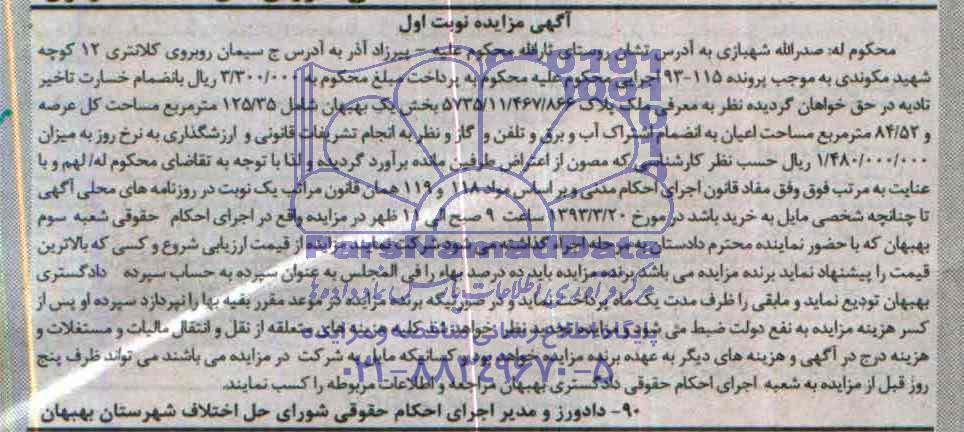 آگهی مزایده نوبت اول
محکوم له: صدرالله شهبازی به آدرس تشان روستای ثارالله محکوم علیه - پیرزاد آذر به آدرس خ سیمان روبروی کلانتری ۱۲ کوچه
شهید مکوندی به موجب پرونده ۱۱۵-۹۳ اجرایی محکوم علیه محکوم به پرداخت مبلغ محکوم به ۳/۳۰۰/۰۰۰ ریال بانضمام خسارت تاخیر
تادیه در حق خواهان گردیده نظر به معرفی ملک پلاک ۵۷۳۵/۱۱/۴۶۷/۸۶۶ بخش یک بهبهان شامل ۱۲۵/۳۵ مترمربع مساحت کل عرصه
و ۸۴/۵۲ مترمربع مساحت اعیان به انضمام اشتراک آب و برق و تلفن و گاز و نظر به انجام تشریفات قانونی و ارزشگذاری به نرخ روز به میزان
۱/۴۸۰/۰۰۰/۰۰۰ ریال حسب نظر کارشناسی که مصون از اعتراض طرفین مانده برآورد گردیده و لذا با توجه به تقاضای محکوم له/ لهم و با
عنایت به مرتب فوق وفق مفاد قانون اجرای احکام مدنی و بر اساس مواد ۱۱۸ و ۱۱۹ همان قانون مراتب یک نوبت در روزنامه های محلی آگهی
تا چنانچه شخصی مایل به خرید باشد در مورخ ۱۳۹۳/۳/۲۰ ساعت ۹ صبح الی ۱۱ ظهر در مزایده واقع در اجرای احکام حقوقی شعبه سوم
بهبهان که با حضور نماینده محترم دادستان به مرحله اجراء گذاشته می شود شرکت نمایند مزایده از قیمت ارزیابی شروع و کسی که بالاترین
قیمت را پیشنهاد نماید برنده مزایده می باشد برنده مزایده باید ده درصد بهاء را فی المجلس به عنوان سپرده به حساب سپرده دادگستری
بهبهان تودیع نماید و مابقی را ظرف مدت یک ماه پرداخت نماید و در صورتیکه برنده مزایده در موعد مقرر بقیه بها را نپردازد سپرده او پس از
کسر هزینه مزایده به نفع دولت ضبط می شود و مزایده تجدید نظر خواهد شد کلیه هزینه های متعلقه از نقل و انتقال مالیات و مستغلات و
هزینه درج در آگهی و هزینه های دیگر به عهده برنده مزایده خواهد بود و کسانیکه مایل به شرکت در مزایده می باشند می تواند ظرف پنج
روز قبل از مزایده به شعبه اجرای احکام حقوقی دادگستری بهبهان مراجعه و اطلاعات مربوطه را کسب نمایند.
۹۰- دادورز و مدیر اجرای احکام حقوقی شورای حل اختلاف شهرستان بهبهان
ParsNamadData
پایگاه اطلاع رسانی مناقصه و مزایده
۰۲۱-۸۸۳۴۹۶۷۰-۵